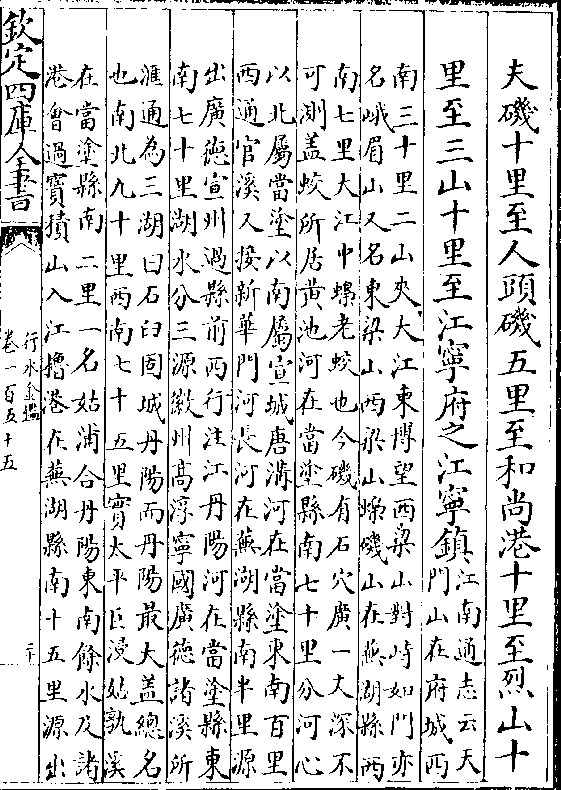 夫磯十里至人頭磯五里至和尚港十里至烈山十
里至三山十里至江寧府之江寧鎮江南通志云天
門山在府城西
南三十里二山夾大江東博望西梁山對峙如門亦
名峨眉山又名東梁山西梁山蟂磯山在蕪湖縣西
南七里大江中蟂老蛟也今磯有石穴廣一丈深不
可測蓋蛟所居黃池河在當塗縣南七十里分河心
以北屬當塗以南屬宣城唐溝河在當塗東南百里
西通官溪又接新華門河長河在蕪湖縣南半里源
出廣德宣州過縣前西行注江丹陽河在當塗縣東
南七十里湖水分三源徽州高淳寧國廣德諸溪所
滙通為三湖曰石臼固城丹陽而丹陽最大蓋總名
也南北九十里西南七十五里實太平巨浸姑孰溪
在當塗縣南二里一名姑浦合丹陽東南餘水及諸
港會過寶積山入江擼港在蕪湖縣南十五里源出
欽定四庫全書
行水金鑑
卷一百五十五
二十